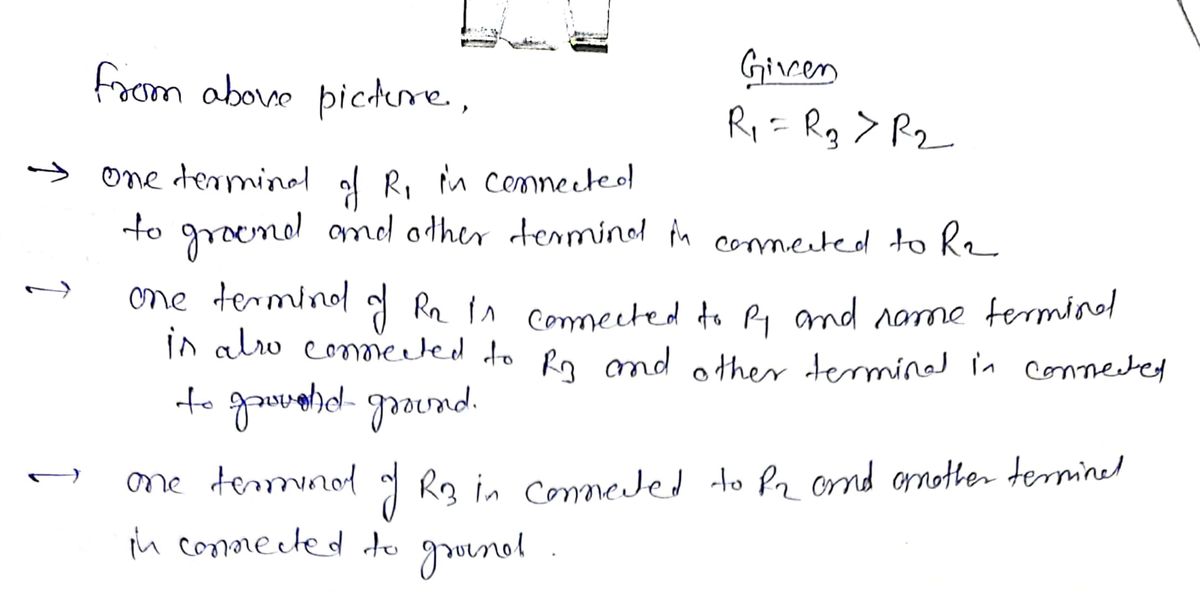 Given
From above picture,
R₁ = R₃ > R₂
→ one terminal of R₁ is connected
to ground and other terminal is connected to R₂
→ one terminal of R₂ is connected to R₁ and same terminal
is also connected to R₃ and other terminal is connected
to ground.
→ one terminal of R₃ is connected to R₂ and another terminal
is connected to ground.